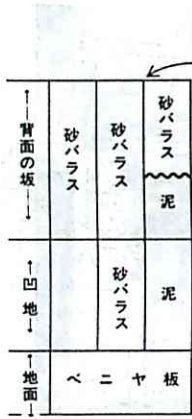 背面の坂
砂バラス
砂バラス
砂バラス
泥
凹地
砂バラス
泥
地面
ベニヤ板